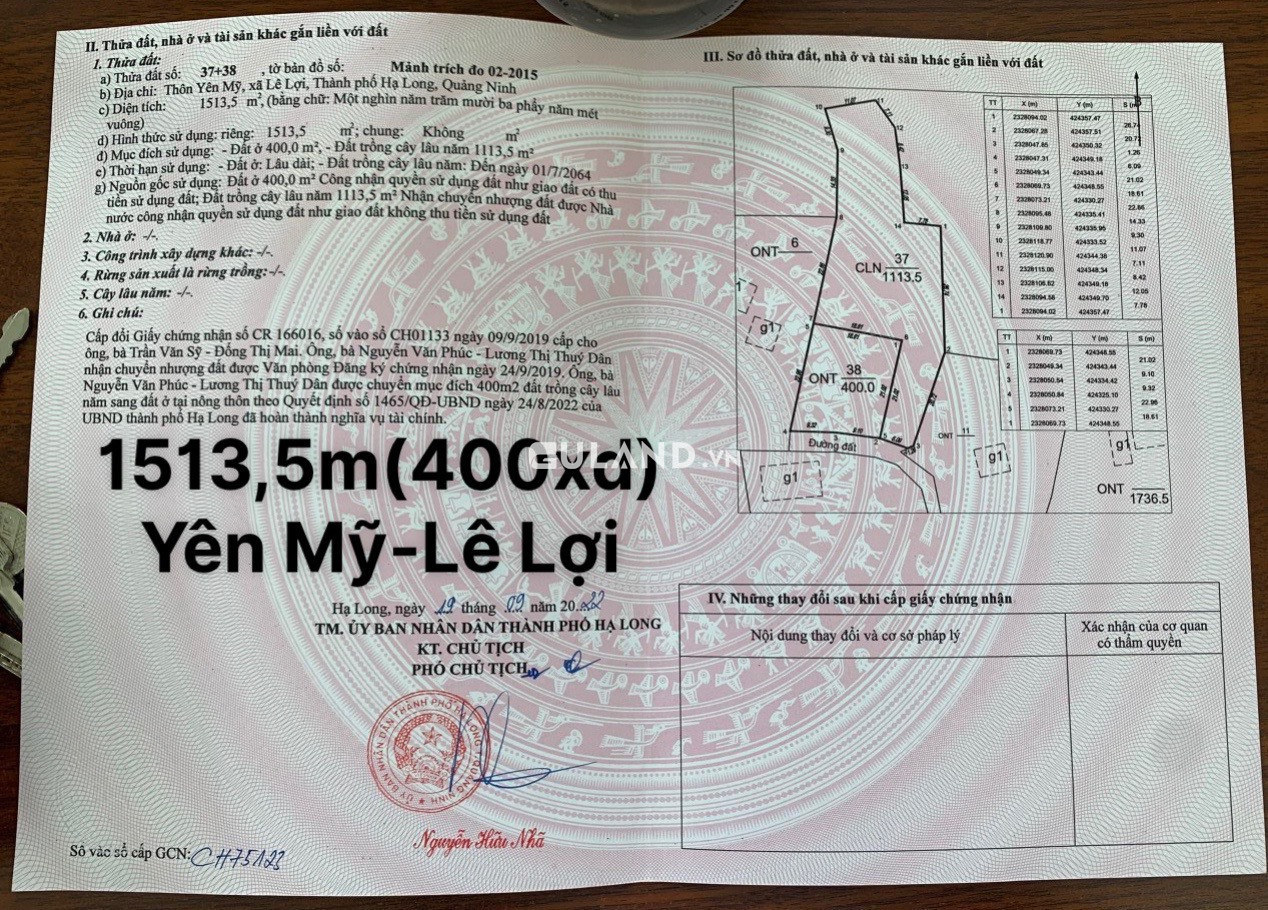 II. Thửa đất, nhà ở và tài sản khác gắn liền với đất
1. Thửa đất:
a) Thửa đất số: 37+38 , tờ bản đồ số: Mảnh trích đo 02-2015
b) Địa chỉ: Thôn Yên Mỹ, xã Lê Lợi, Thành phố Hạ Long, Quảng Ninh
c) Diện tích: 1513,5 m², (bằng chữ: Một nghìn năm trăm mười ba phẩy năm mét
vuông)
d) Hình thức sử dụng: riêng: 1513,5 m²; chung: Không m²
đ) Mục đích sử dụng: - Đất ở 400,0 m², - Đất trồng cây lâu năm 1113,5 m²
e) Thời hạn sử dụng: - Đất ở: Lâu dài; - Đất trồng cây lâu năm: Đến ngày 01/7/2064
g) Nguồn gốc sử dụng: Đất ở 400,0 m² Công nhận quyền sử dụng đất như giao đất có thu
tiền sử dụng đất; Đất trồng cây lâu năm 1113,5 m² Nhận chuyển nhượng đất được Nhà
nước công nhận quyền sử dụng đất như giao đất không thu tiền sử dụng đất
2. Nhà ở: -/-.
3. Công trình xây dựng khác: -/-.
4. Rừng sản xuất là rừng trồng:-/-.
5. Cây lâu năm: -/-.
6. Ghi chú:
Cấp đổi Giấy chứng nhận số CR 166016, số vào sổ CH01133 ngày 09/9/2019 cấp cho
ông, bà Trần Văn Sỹ - Đồng Thị Mai. Ông, bà Nguyễn Văn Phúc - Lương Thị Thuý Dân
nhận chuyển nhượng đất được Văn phòng Đăng ký chứng nhận ngày 24/9/2019. Ông, bà
Nguyễn Văn Phúc - Lương Thị Thuý Dân được chuyển mục đích 400m2 đất trồng cây lâu
năm sang đất ở tại nông thôn theo Quyết định số 1465/QĐ-UBND ngày 24/8/2022 của
UBND thành phố Hạ Long đã hoàn thành nghĩa vụ tài chính.
1513,5m(400xd)
GULAND.VN
Yên Mỹ-Lê Lợi
Hạ Long, ngày 19 tháng 09 năm 2022
TM. ỦY BAN NHÂN DÂN THÀNH PHỐ HẠ LONG
KT. CHỦ TỊCH
PHÓ CHỦ TỊCH
ỦY BAN NHÂN DÂN THÀNH PHỐ HẠ LONG
QUẢNG NINH
Nguyễn Hữu Nhã
Số vào sổ cấp GCN: CH75123
III. Sơ đồ thửa đất, nhà ở và tài sản khác gắn liền với đất
ONT 6
CLN 37
1113.5
ONT 38
400.0
Đường đất
ONT 11
g1
g1
g1
g1
ONT
1736.5
TT X (m) Y (m) S (m)
1 2328094.02 424357.47
2 2328067.28 424357.51
3 2328047.85 424350.32
4 2328047.31 424349.18
5 2328049.34 424343.44
6 2328069.73 424348.55
7 2328073.21 424330.27
8 2328095.48 424335.41
9 2328109.80 424335.95
10 2328118.77 424333.52
11 2328120.90 424344.38
12 2328115.00 424348.34
13 2328106.62 424349.18
14 2328094.56 424349.70
1 2328094.02 424357.47
26.74
20.72
1.26
6.09
21.02
18.61
22.86
14.33
9.30
11.07
7.11
8.42
12.05
7.78
TT X (m) Y (m) S (m)
1 2328069.73 424348.55
2 2328049.34 424343.44
3 2328050.54 424334.42
4 2328050.84 424325.10
5 2328073.21 424330.27
1 2328069.73 424348.55
21.02
9.10
9.32
22.96
18.61
IV. Những thay đổi sau khi cấp giấy chứng nhận
Nội dung thay đổi và cơ sở pháp lý
Xác nhận của cơ quan
có thẩm quyền